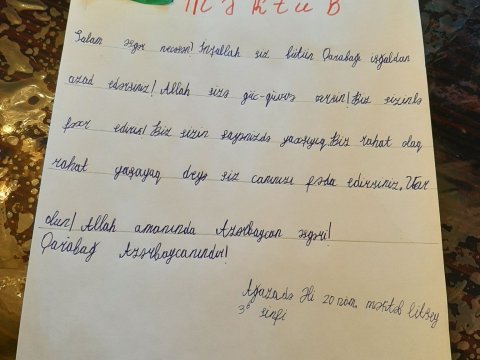 Məktub
Salam əsgər necəsən! İnşallah siz bütün Qarabağı işğaldan
azad edərsiniz! Allah sizə güc-qüvvə versin! Biz sizinlə
fəxr edirik! Biz sizin sayənizdə yaşıyıq. Biz rahat olaq
rahat yaşayaq deyə siz canınızı fəda edirsiniz. Var
olun! Allah amanında Azərbaycan əsgəri!
Qarabağ Azərbaycanındır!
Ağazadə Əli 20 nöm. məktəb litsey
3ᵇ sinfi